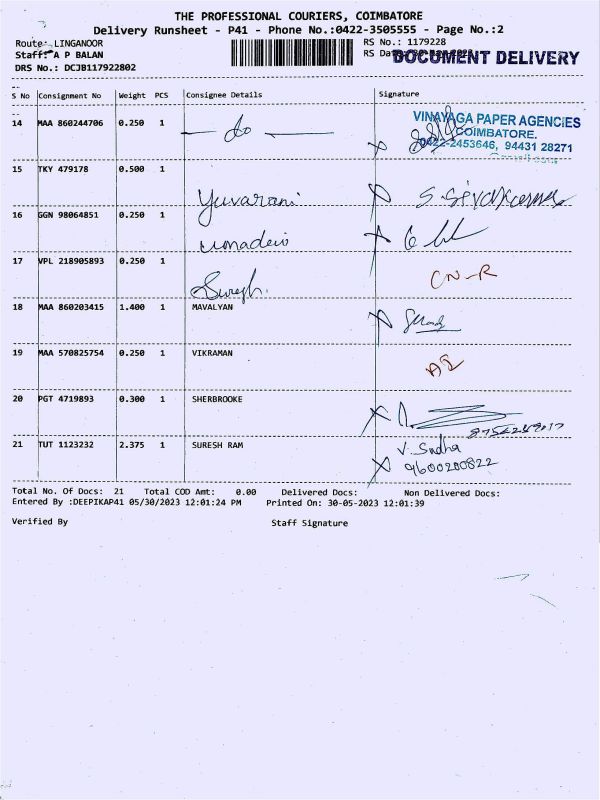 THE PROFESSIONAL COURIERS, COIMBATORE
Delivery Runsheet - P41 - Phone No.:0422-3505555 - Page No.:2
Route: LINGANOOR RS No.: 1179228
Staff: A P BALAN RS Date: DOCUMENT DELIVERY
DRS No.: DCJB117922802
S No Consignment No Weight PCS Consignee Details Signature
14 MAA 860244706 0.250 1 do VINAYAGA PAPER AGENCIES
COIMBATORE.
0422-2453646, 94431 28271
15 TKY 479178 0.500 1
Yuvarani S. Sivakumar
16 GGN 98064851 0.250 1
umadevi
17 VPL 218905893 0.250 1
Suresh. CN-R
18 MAA 860203415 1.400 1 MAVALYAN
19 MAA 570825754 0.250 1 VIKRAMAN
20 PGT 4719893 0.300 1 SHERBROOKE
21 TUT 1123232 2.375 1 SURESH RAM V. Sudha
9600200822
Total No. Of Docs: 21 Total COD Amt: 0.00 Delivered Docs: Non Delivered Docs:
Entered By :DEEPIKAP41 05/30/2023 12:01:24 PM Printed On: 30-05-2023 12:01:39
Verified By Staff Signature